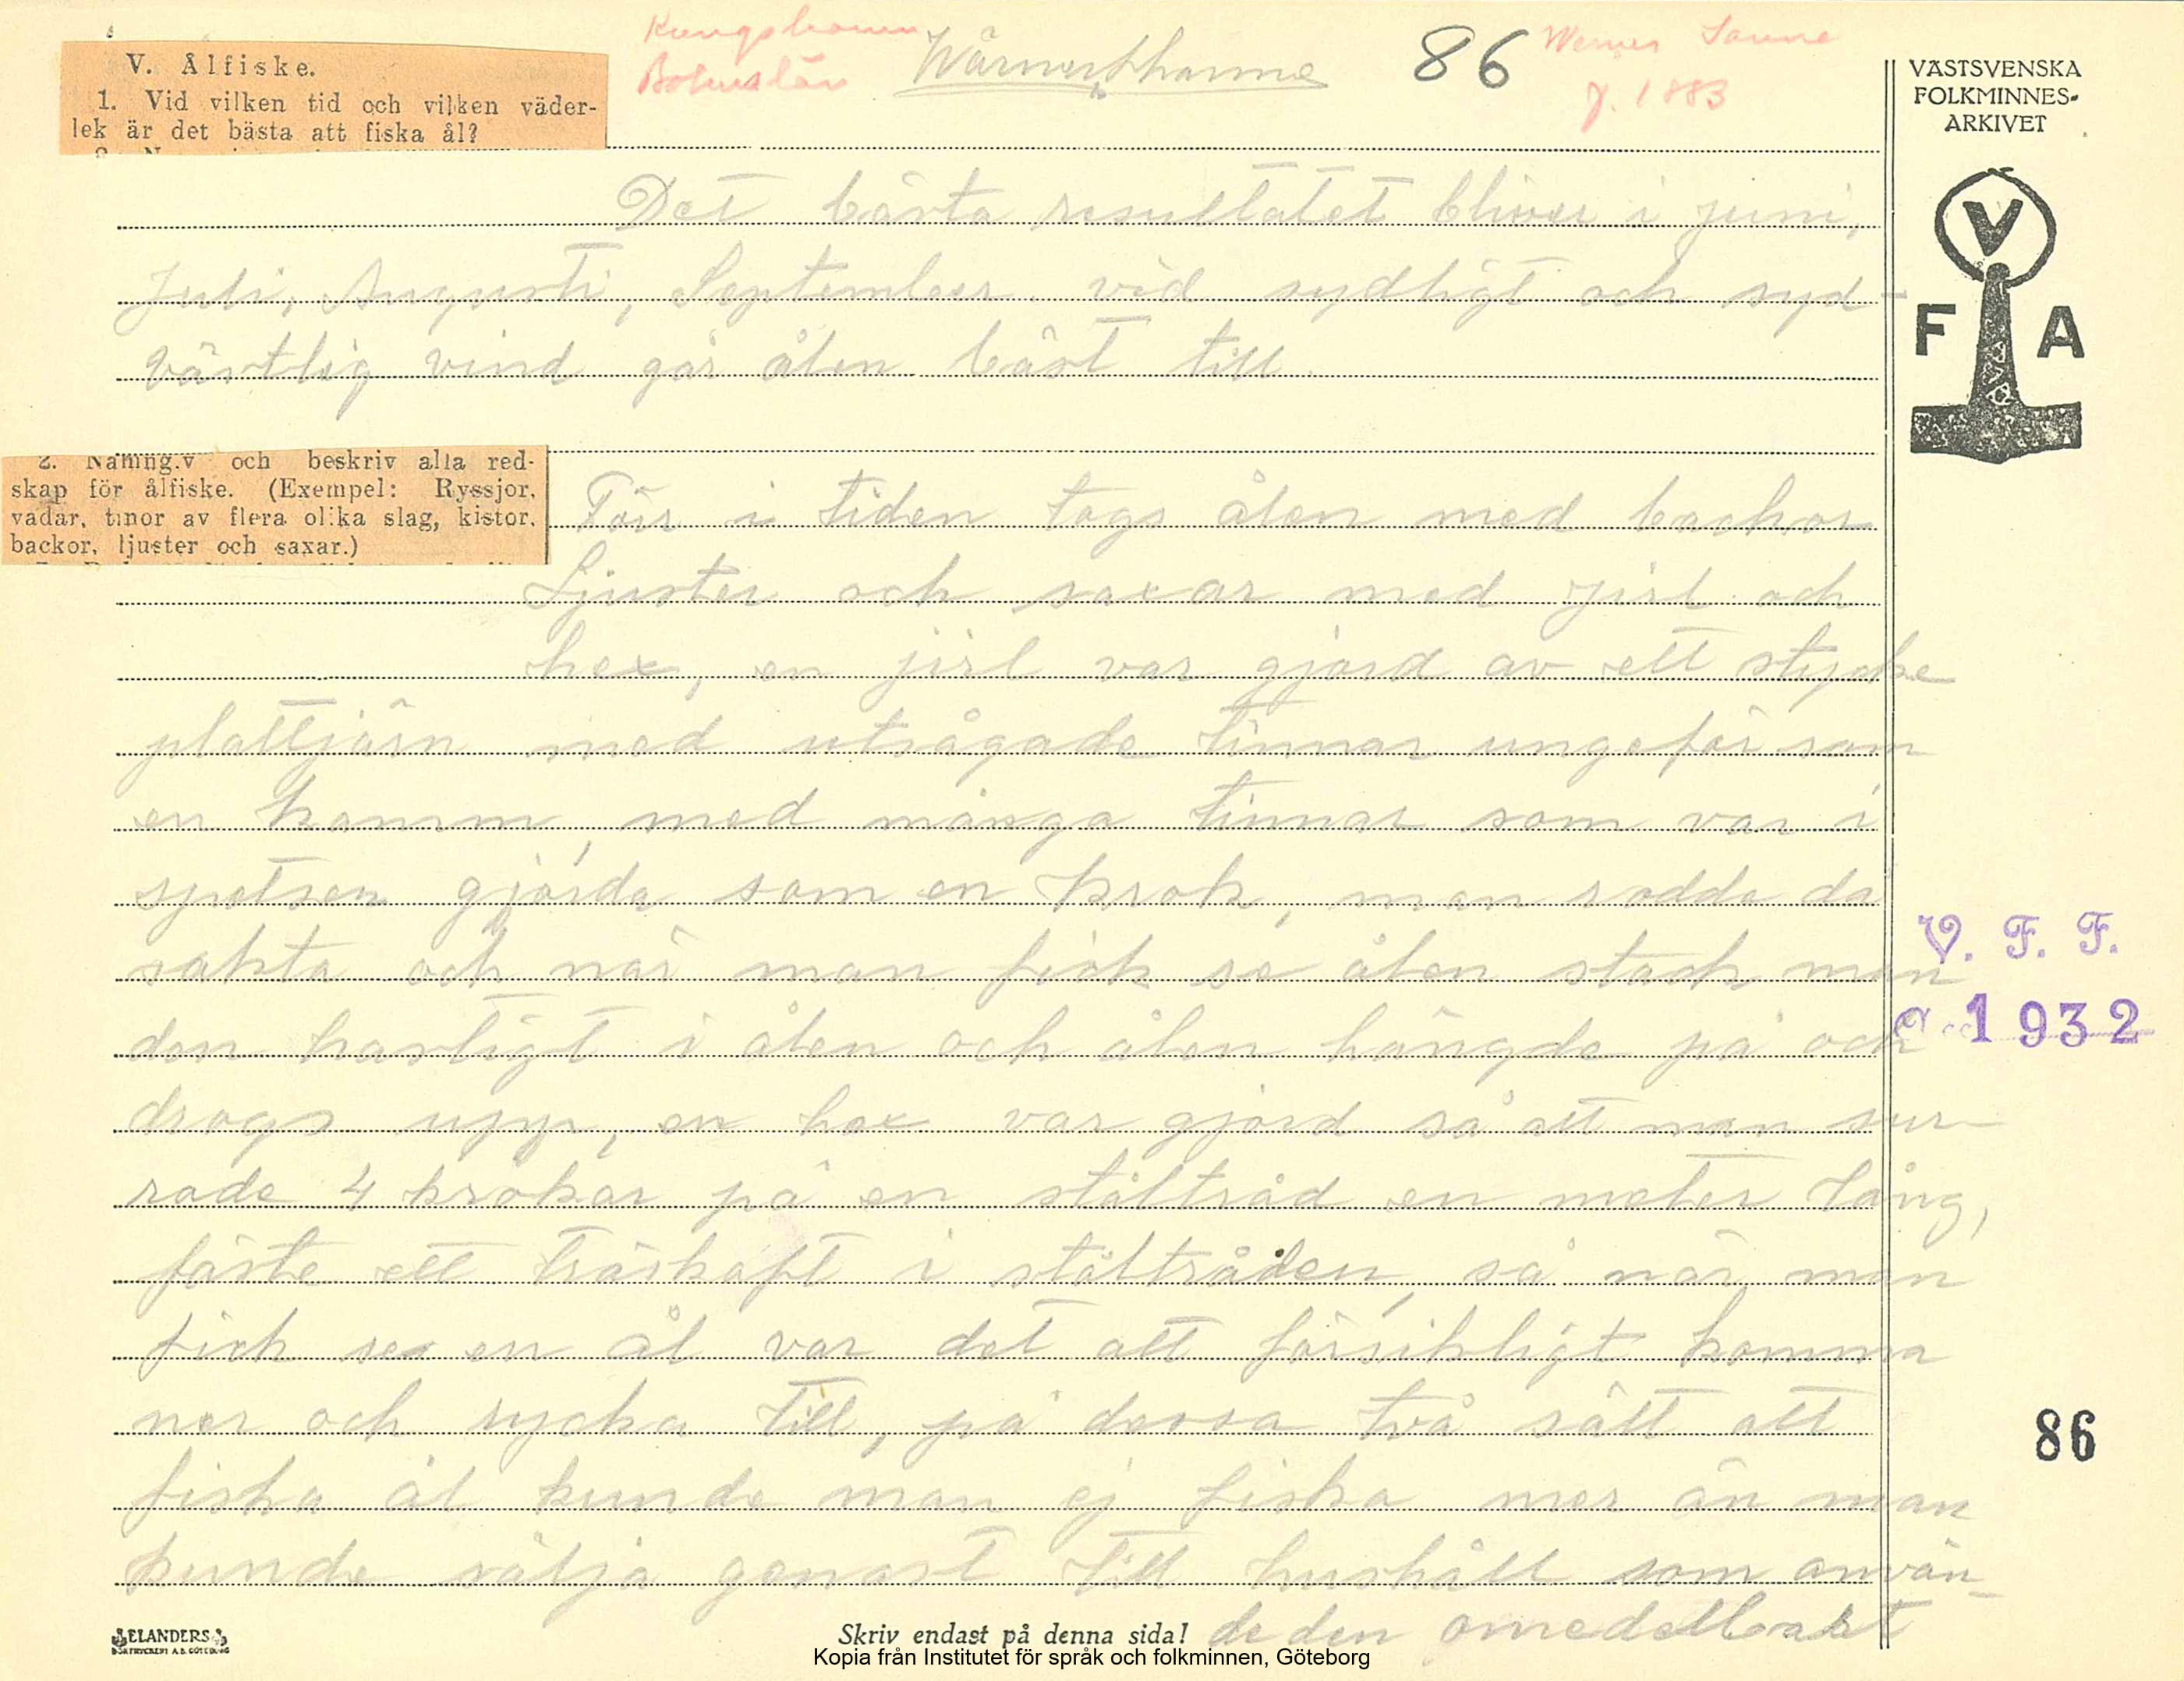 Kungshamn
Bohuslän
86
Werner Sanne
f. 1883
V. Ålfiske.
1. Vid vilken tid och vilken väder-
lek är det bästa att fiska ål?
VÄSTSVENSKA
FOLKMINNES-
ARKIVET
V
F A
Det bästa resultatet bliver i juni,
Juli, Augusti, September. vid sydligt och syd-
västlig vind går ålen bäst till.
2. och beskriv alla red-
skap för ålfiske. (Exempel: Ryssjor,
vadar, tinor av flera olika slag, kistor,
backor, ljuster och saxar.)
Förr i tiden togs ålen med backor
Ljuster och saxar med jirl och
hex, en jirl var gjord av ett stycke
plattjärn med utsågade tinnar ungefär som
en kamm, med många tinnar som var i
spetsen gjorda som en krok, man rodde då
sakta och när man fick se ålen stack man
den hastigt i ålen och ålen hängde på och
drogs upp, en hex var gjord så att man sur-
rade 4 krokar på en ståltråd en meter lång,
fäste ett träskaft i ståltråden, så när man
fick se en ål var det att försiktigt komma
ner och rycka till, på dessa två sätt att
fiska ål kunde man ej fiska mer än man
kunde sälja genast till hushåll som använ-
de den omedelbart
V. F. F.
1932
86
ELANDERS
BOKTRYCKERI A.B. GÖTEBORG
Skriv endast på denna sida!
Kopia från Institutet för språk och folkminnen, Göteborg